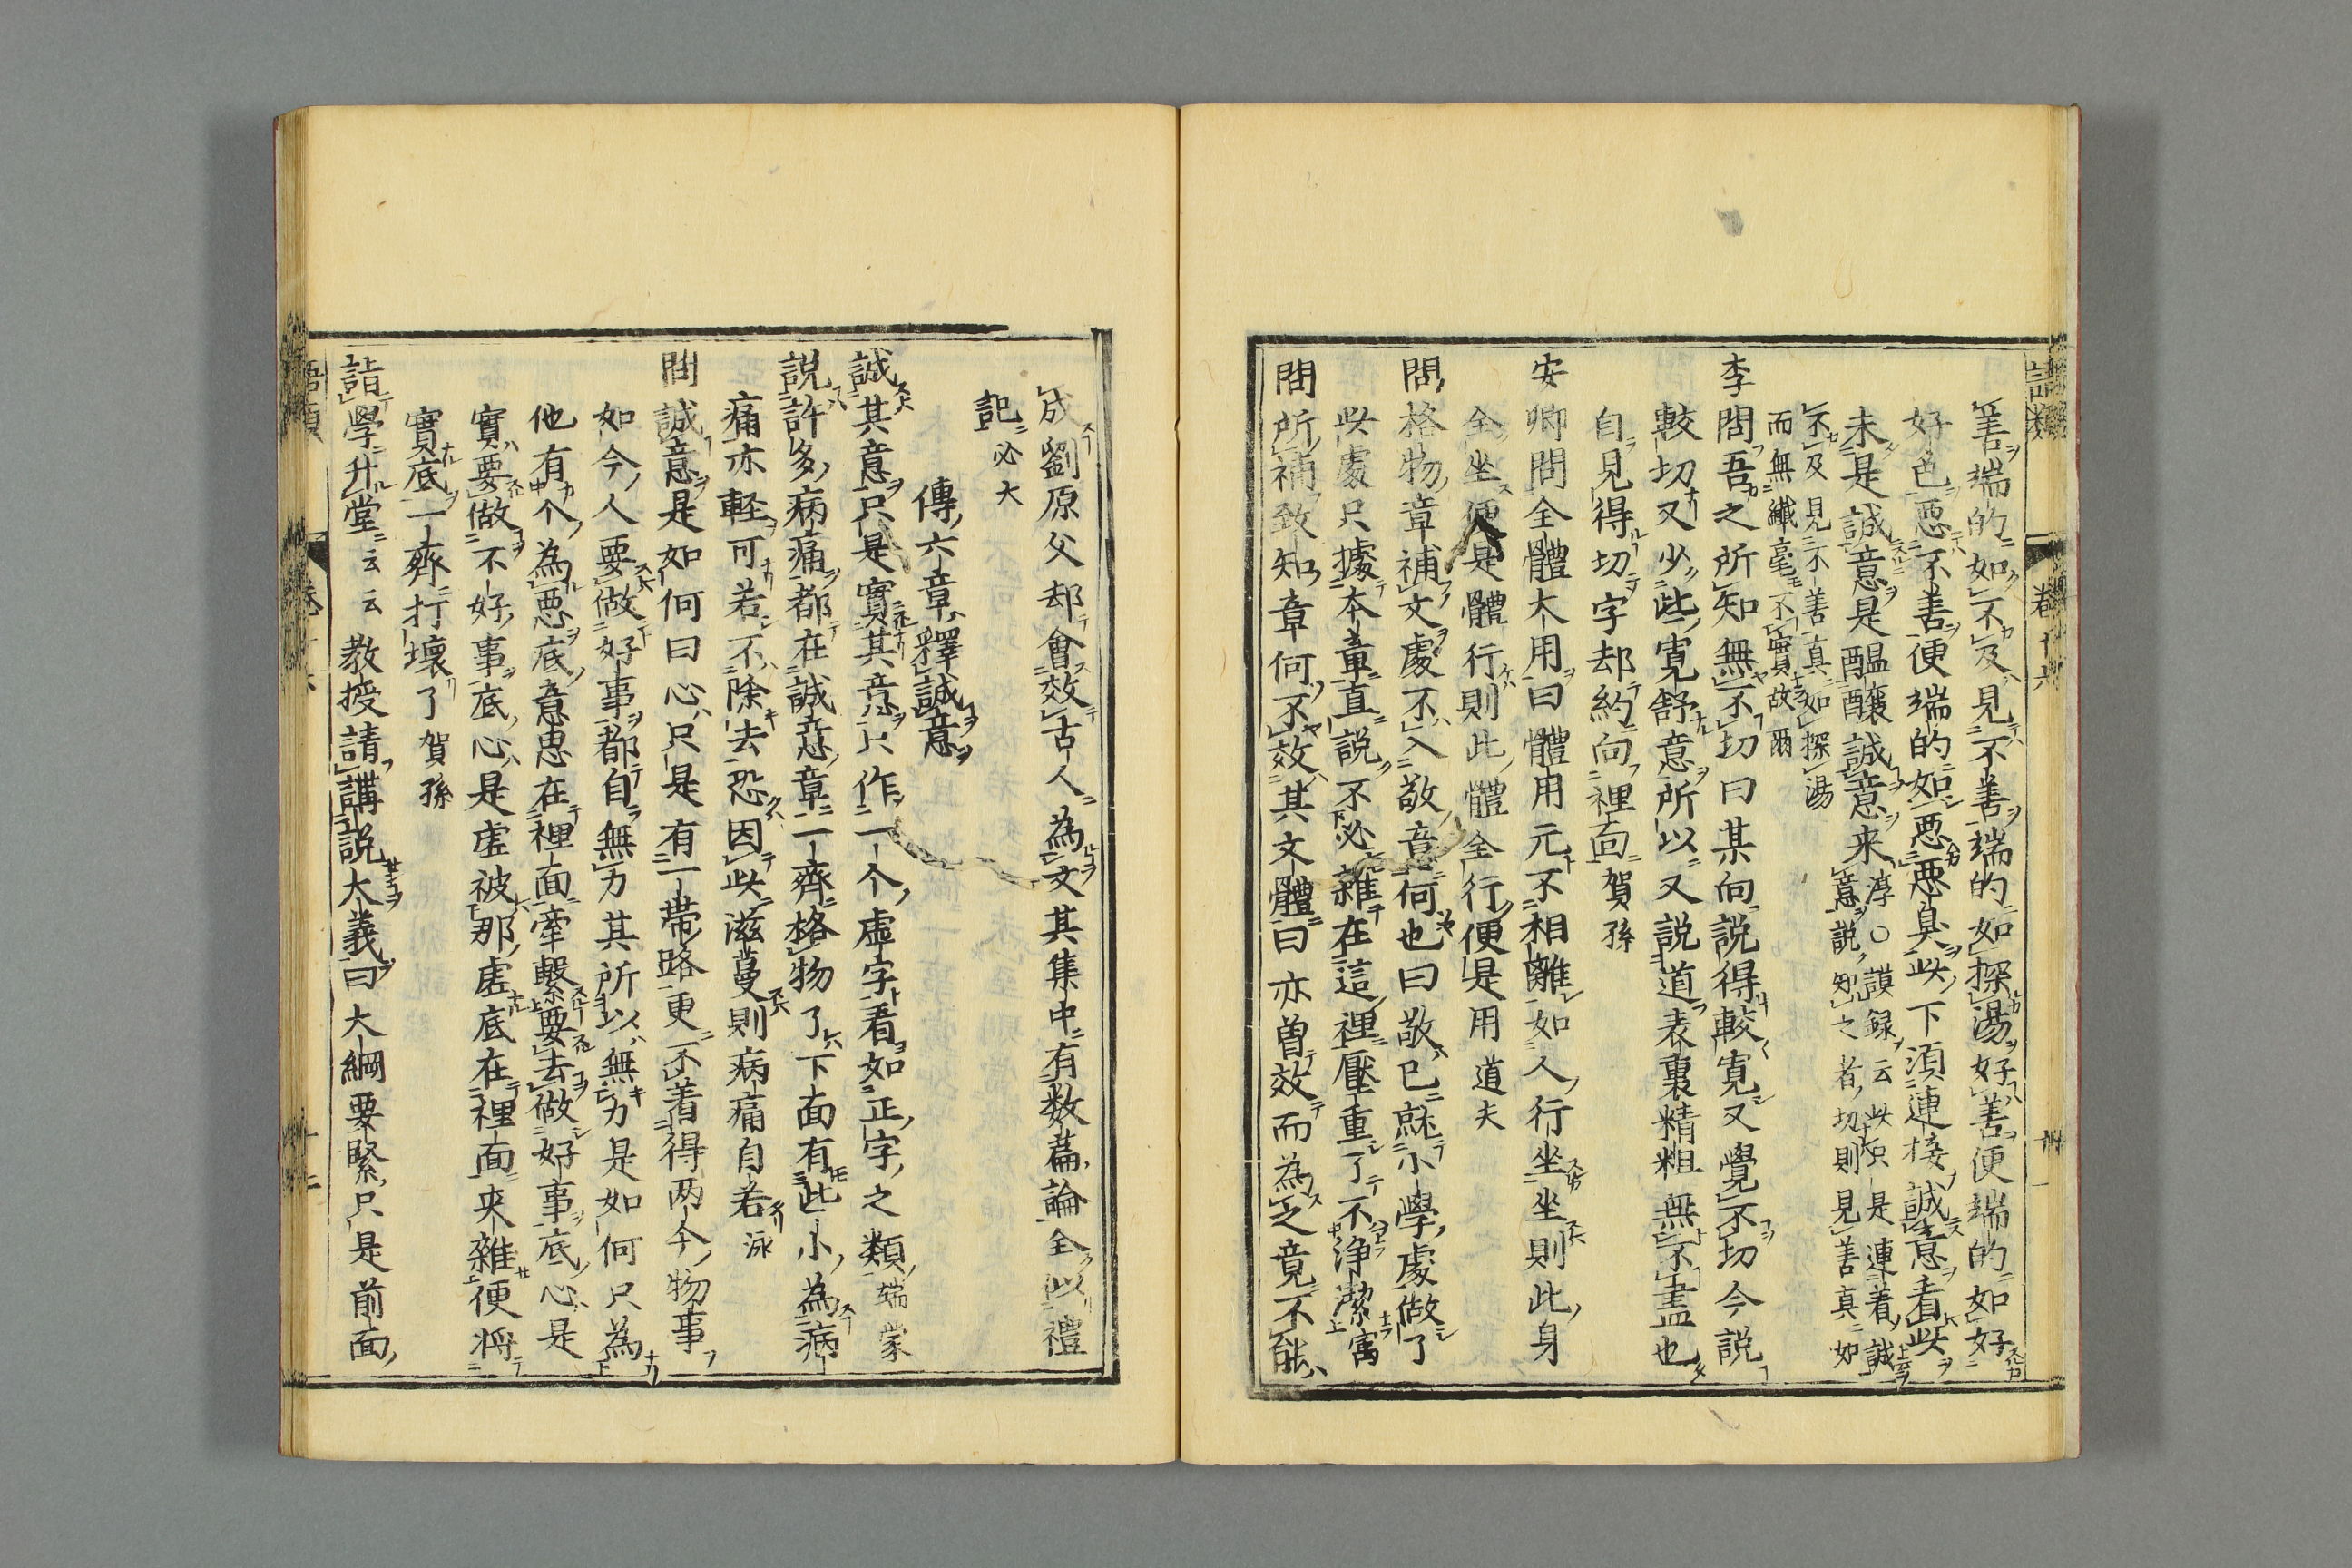 語類　卷十六
善端的如不及見不善端的如探湯好善便端的如好
好色惡不善便端的如惡惡臭此下須連接誠意看此
未是誠意是醞釀誠意来淳○謨録云此只是連着誠
意説知之者切則見善真如
不及見不善真如探湯
而無纎毫不實故爾
李問吾之所知無不切曰某向説得較寛又覺不切今説
較切又少些寛舒意所以又説道表裏精粗無不盡也
自見得切字却約向裡面賀孫
安卿問全體大用曰體用元不相離如人行坐坐則此身
全坐便是體行則此體全行便是用道夫
問格物章補文處不入敬意何也曰敬已就小學處做了
此處只據本章直説不必雜在這裡壓重了不浄潔㝢
問所補致知章何不效其文體曰亦曽效而為之竟不能
成劉原父却會效古人為文其集中有数篇論全似禮
記必大
傳六章釋誠意
誠其意只是實其意只作一个虚字看如正字之類端蒙
説許多病痛都在誠意章一齊格物了下面有些小為病
痛亦軽可若不除去恐因此滋蔓則病痛自若泳
問誠意是如何曰心只是有一帶路更不着得两个物事
如今人要做好事都自無力其所以無力是如何只為
他有个為惡底意思在裡面牽繋要去做好事底心是
實要做不好事底心是虚被那虚底在裡面夾雜便将
實底一齊打壊了賀孫
詣學升堂云云教授請講説大義曰大綱要緊只是前面
語類　卷十六　十二